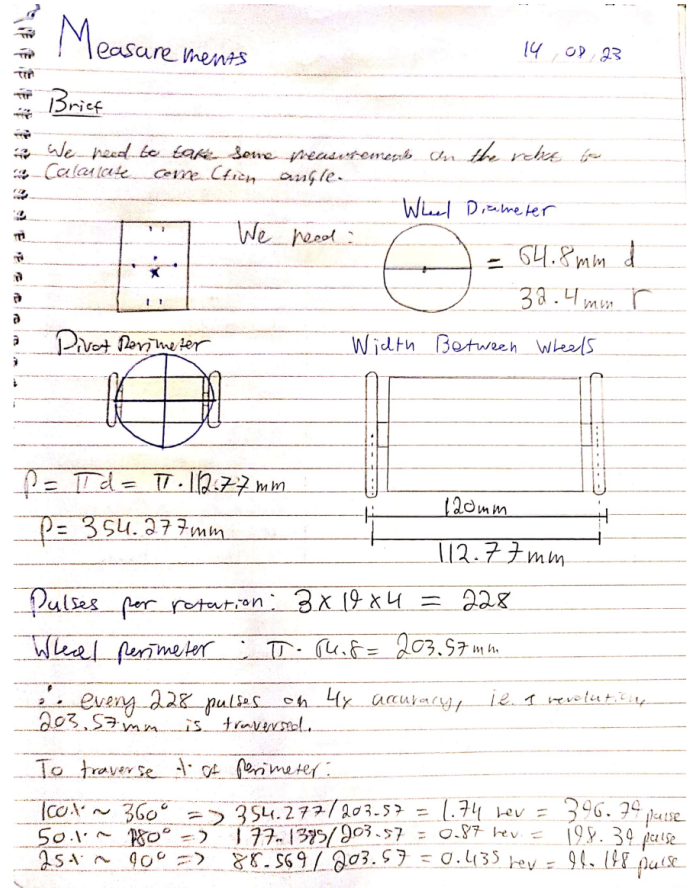 Measurements
14, 08, 23
Brief
We need to take some measurements on the robot to
Calculate correction angle.
We need:
Wheel Diameter
= 64.8mm d
32.4mm r
Pivot Perimeter
Width Between Wheels
P = πd = π·112.77mm
P = 354.277mm
120mm
112.77mm
Pulses per rotation: 3 x 19 x 4 = 228
Wheel perimeter : π· 64.8 = 203.57mm
∴ every 228 pulses on 4x accuracy, ie. 1 revolution,
203.57mm is traversed.
To traverse % of perimeter:
100% ~ 360° => 354.277/203.57 = 1.74 rev = 396.79 pulse
50% ~ 180° => 177.1385/203.57 = 0.87 rev = 198.39 pulse
25% ~ 90° => 88.569/203.57 = 0.435 rev = 99.198 pulse